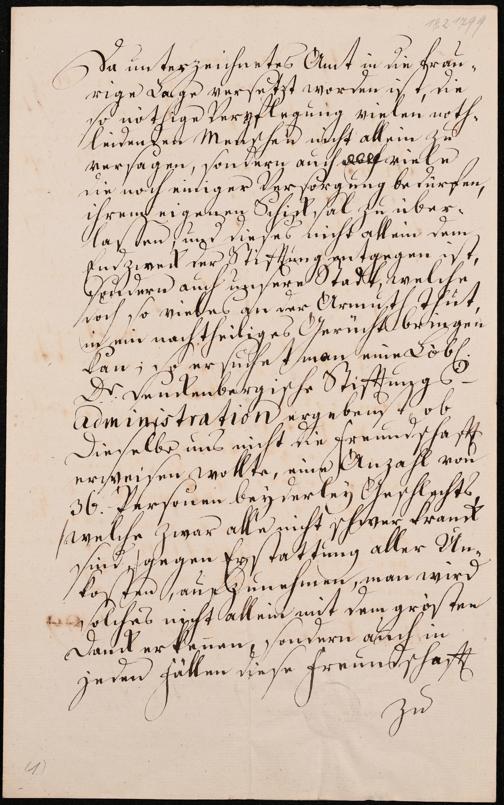 13 2 1799
Da unterzeichnetes Amt in die trau-
rige Lage versetzt worden ist, die
so nöthige Verpflegung vielen noth-
leidenden Menschen nicht allein zu
versagen, sondern auch viele
die noch einiger Versorgung bedürfen,
ihrem eigenen Schiksal zu über-
lassen, und dieses nicht allein dem
Endzweck der Stifftung entgegen ist,
sondern auch unsere Stadt, welche
doch so vieles an der Armuth thut,
in ein nachtheiliges Gerücht bringen
kan; so ersuchet man eine Löbl.
Dr. Senckenbergische Stifftungs-
administration ergebenst ob
Dieselbe uns nicht die Freundschafft
erweisen wollte, eine Anzahl von
36. Personen beyderley Geschlechts,
welche zwar alle nicht schwer kranck
sind, gegen Erstattung aller Un-
kosten, aufzunehmen, man wird
solches nicht allein mit dem grösten
Danck erkennen, sondern auch in
jeden Fällen diese Freundschafft
zu
(4)